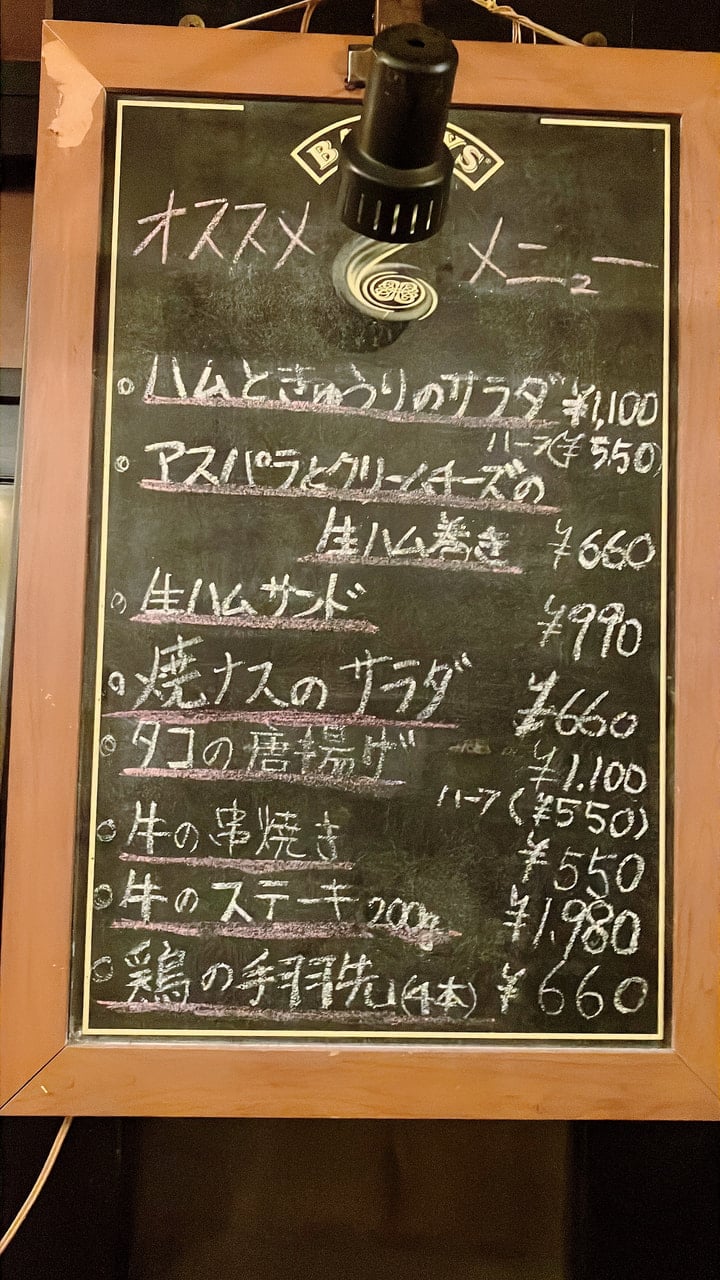 オススメ メニュー
○ ハムときゅうりのサラダ ¥1,100
ハーフ(¥550)
○ アスパラとクリームチーズの
生ハム巻き ¥660
○ 生ハムサンド ¥990
○ 焼ナスのサラダ ¥660
○ タコの唐揚げ ¥1.100
ハーフ(¥550)
○ 牛の串焼き ¥550
○ 牛のステーキ 200g ¥1.980
○ 鶏の手羽先(4本) ¥660